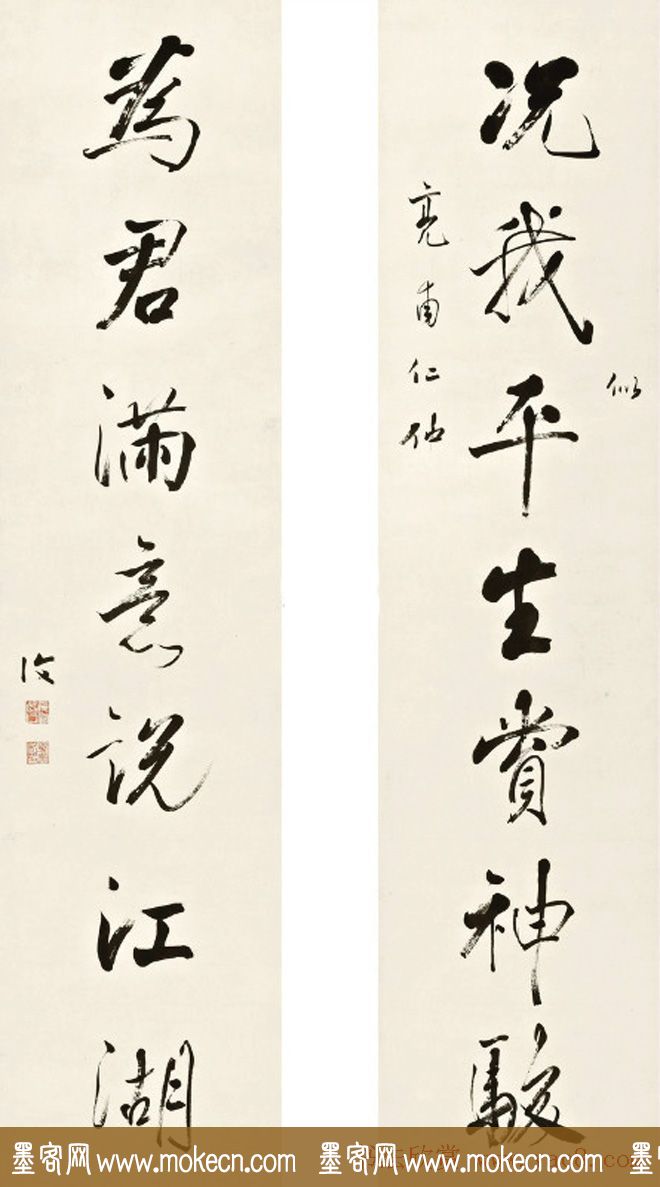 况我平生賞神駿
似
亮甫仁
為君滿意說江湖
墨客网 www.mokecn.com 墨客网 www.mokecn.com